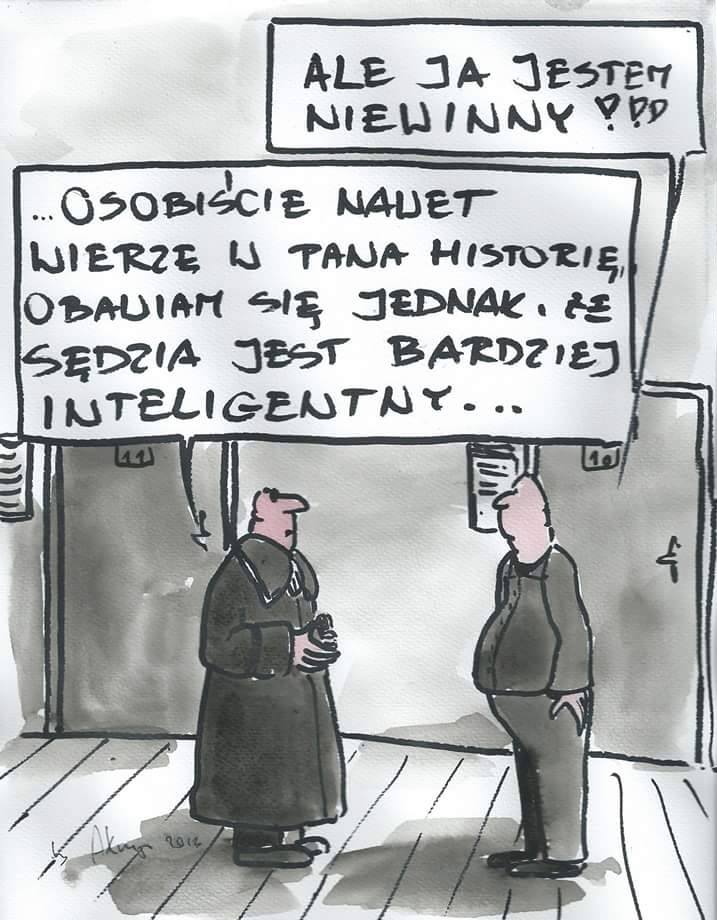 ALE JA JESTEM
NIEWINNY !!!
...OSOBIŚCIE NAWET
WIERZĘ W PANA HISTORIĘ,
OBAWIAM SIĘ JEDNAK, ŻE
SĘDZIA JEST BARDZIEJ
INTELIGENTNY...
11
10
by